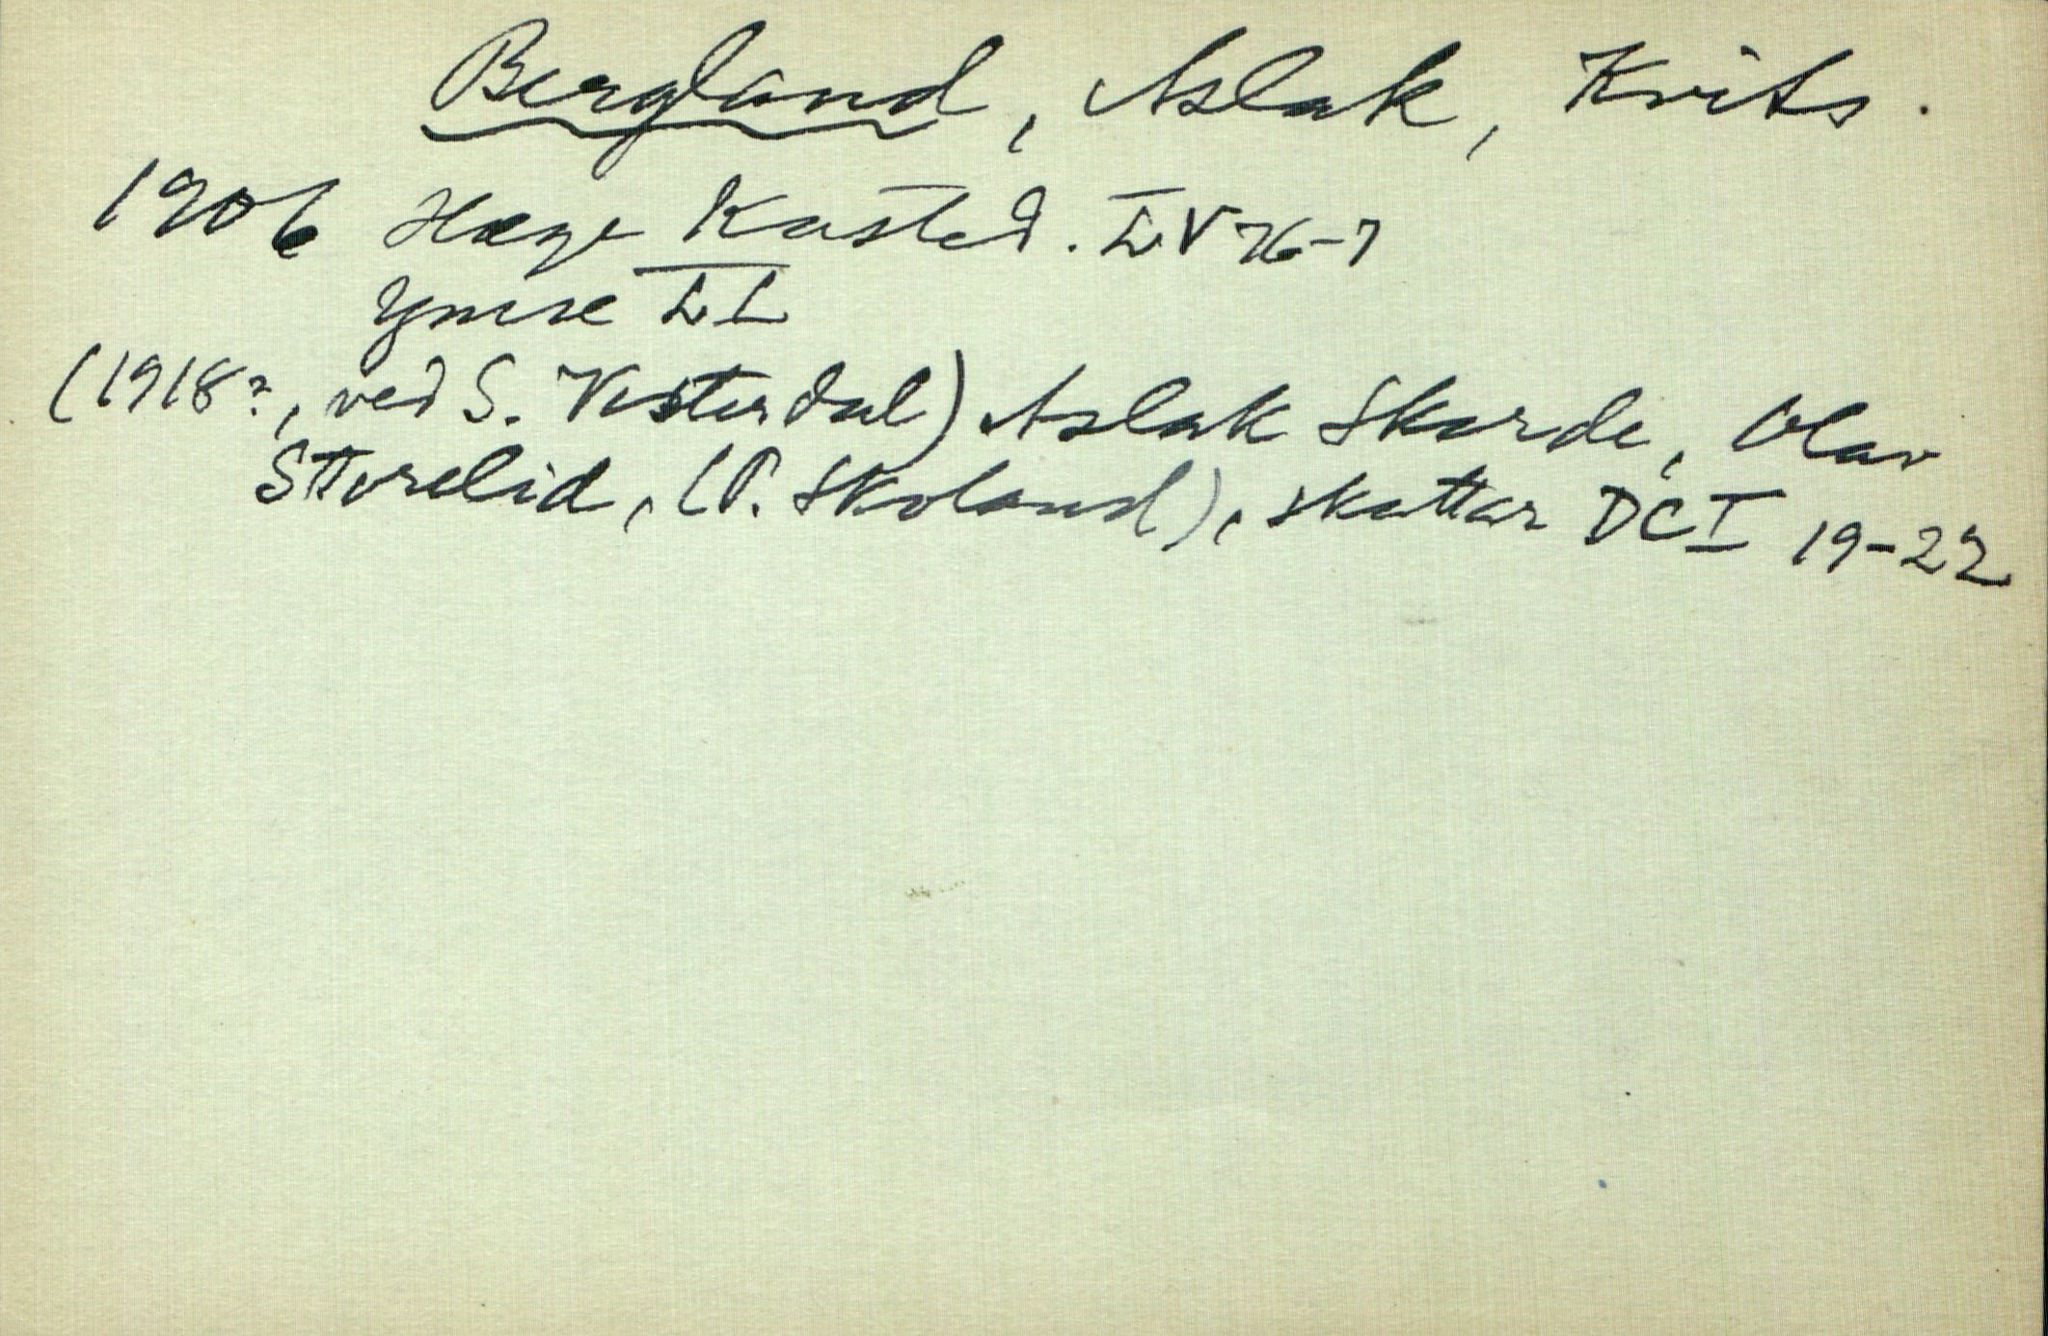 Bergland, Aslak, Kvits.
1906 Hæge Kasted. LV 76-7
Ymse LI
(1918?, ved S. Vesterdal) Aslak Skarde, Olav
Storelid, (P. Skoland), skattar DCI 19-22